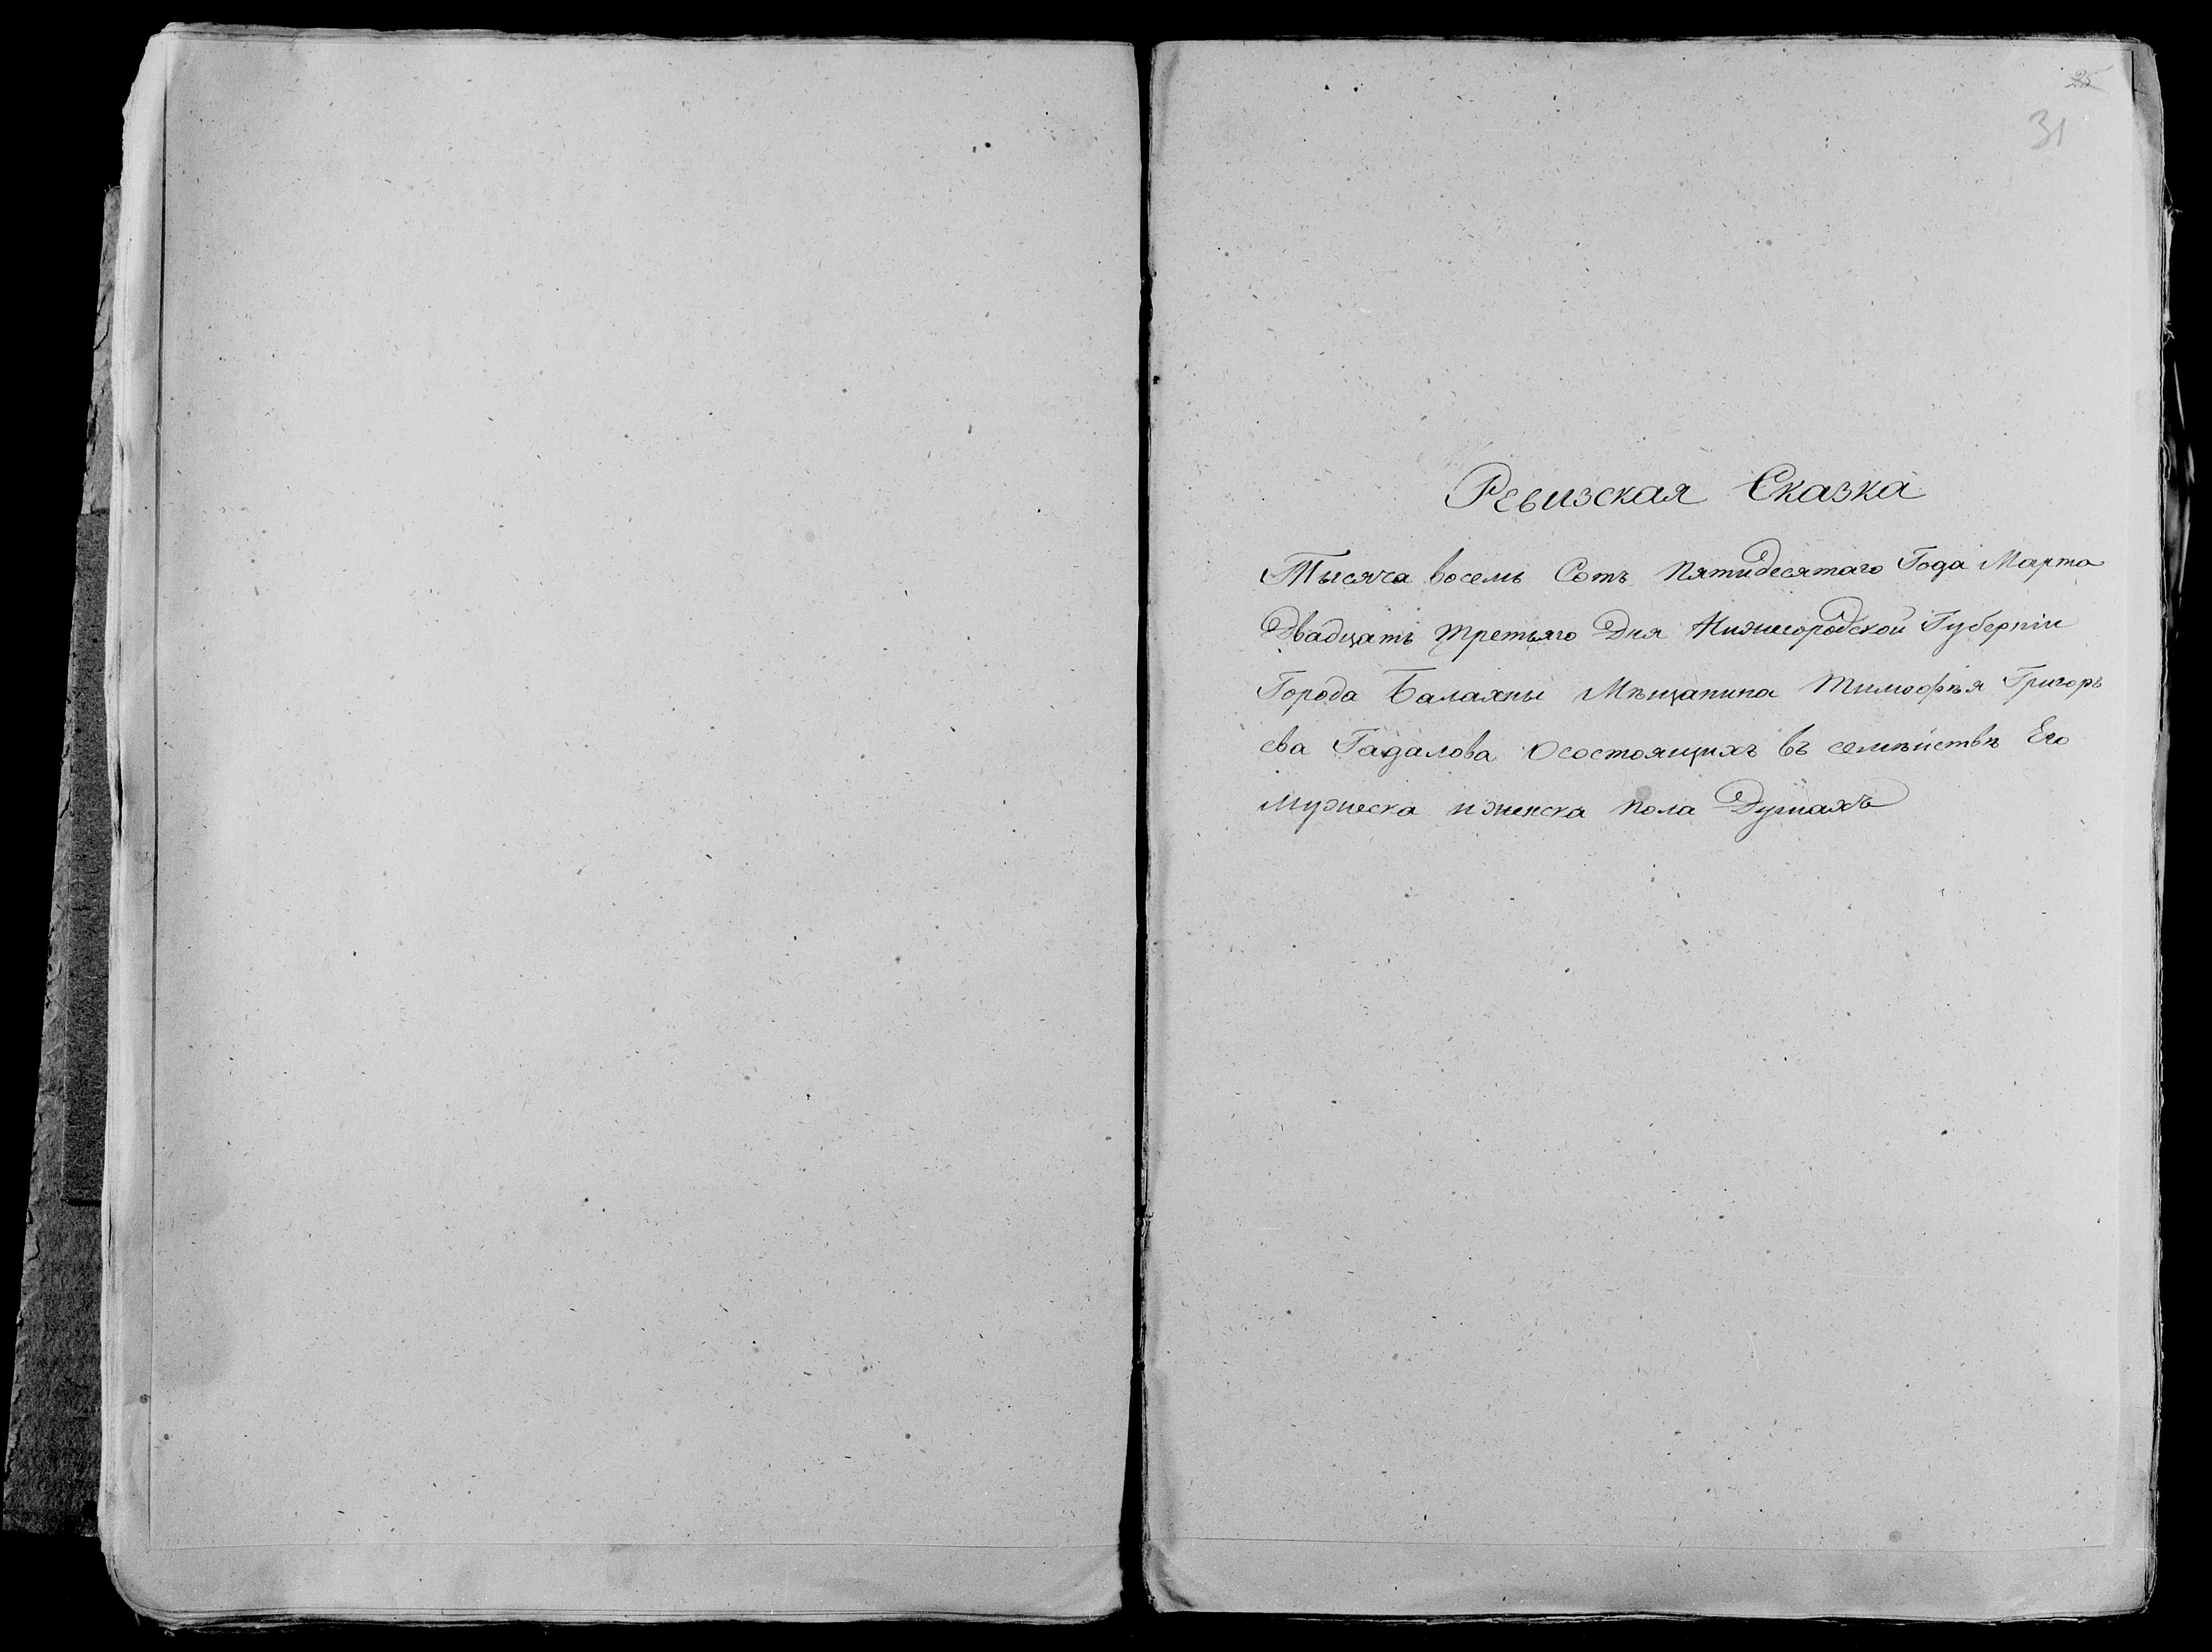 25
31
Ревизская Сказка
Тысяча восемь Сотъ Пятидесятаго Года Марта
Двадцать третьяго Дня Нижегородской Губерніи
Города Балахны Мѣщанина Тимофѣя Григорь
ева Гадалова О состоящихъ въ семѣйствѣ Его
мужеска и женска пола Душахъ